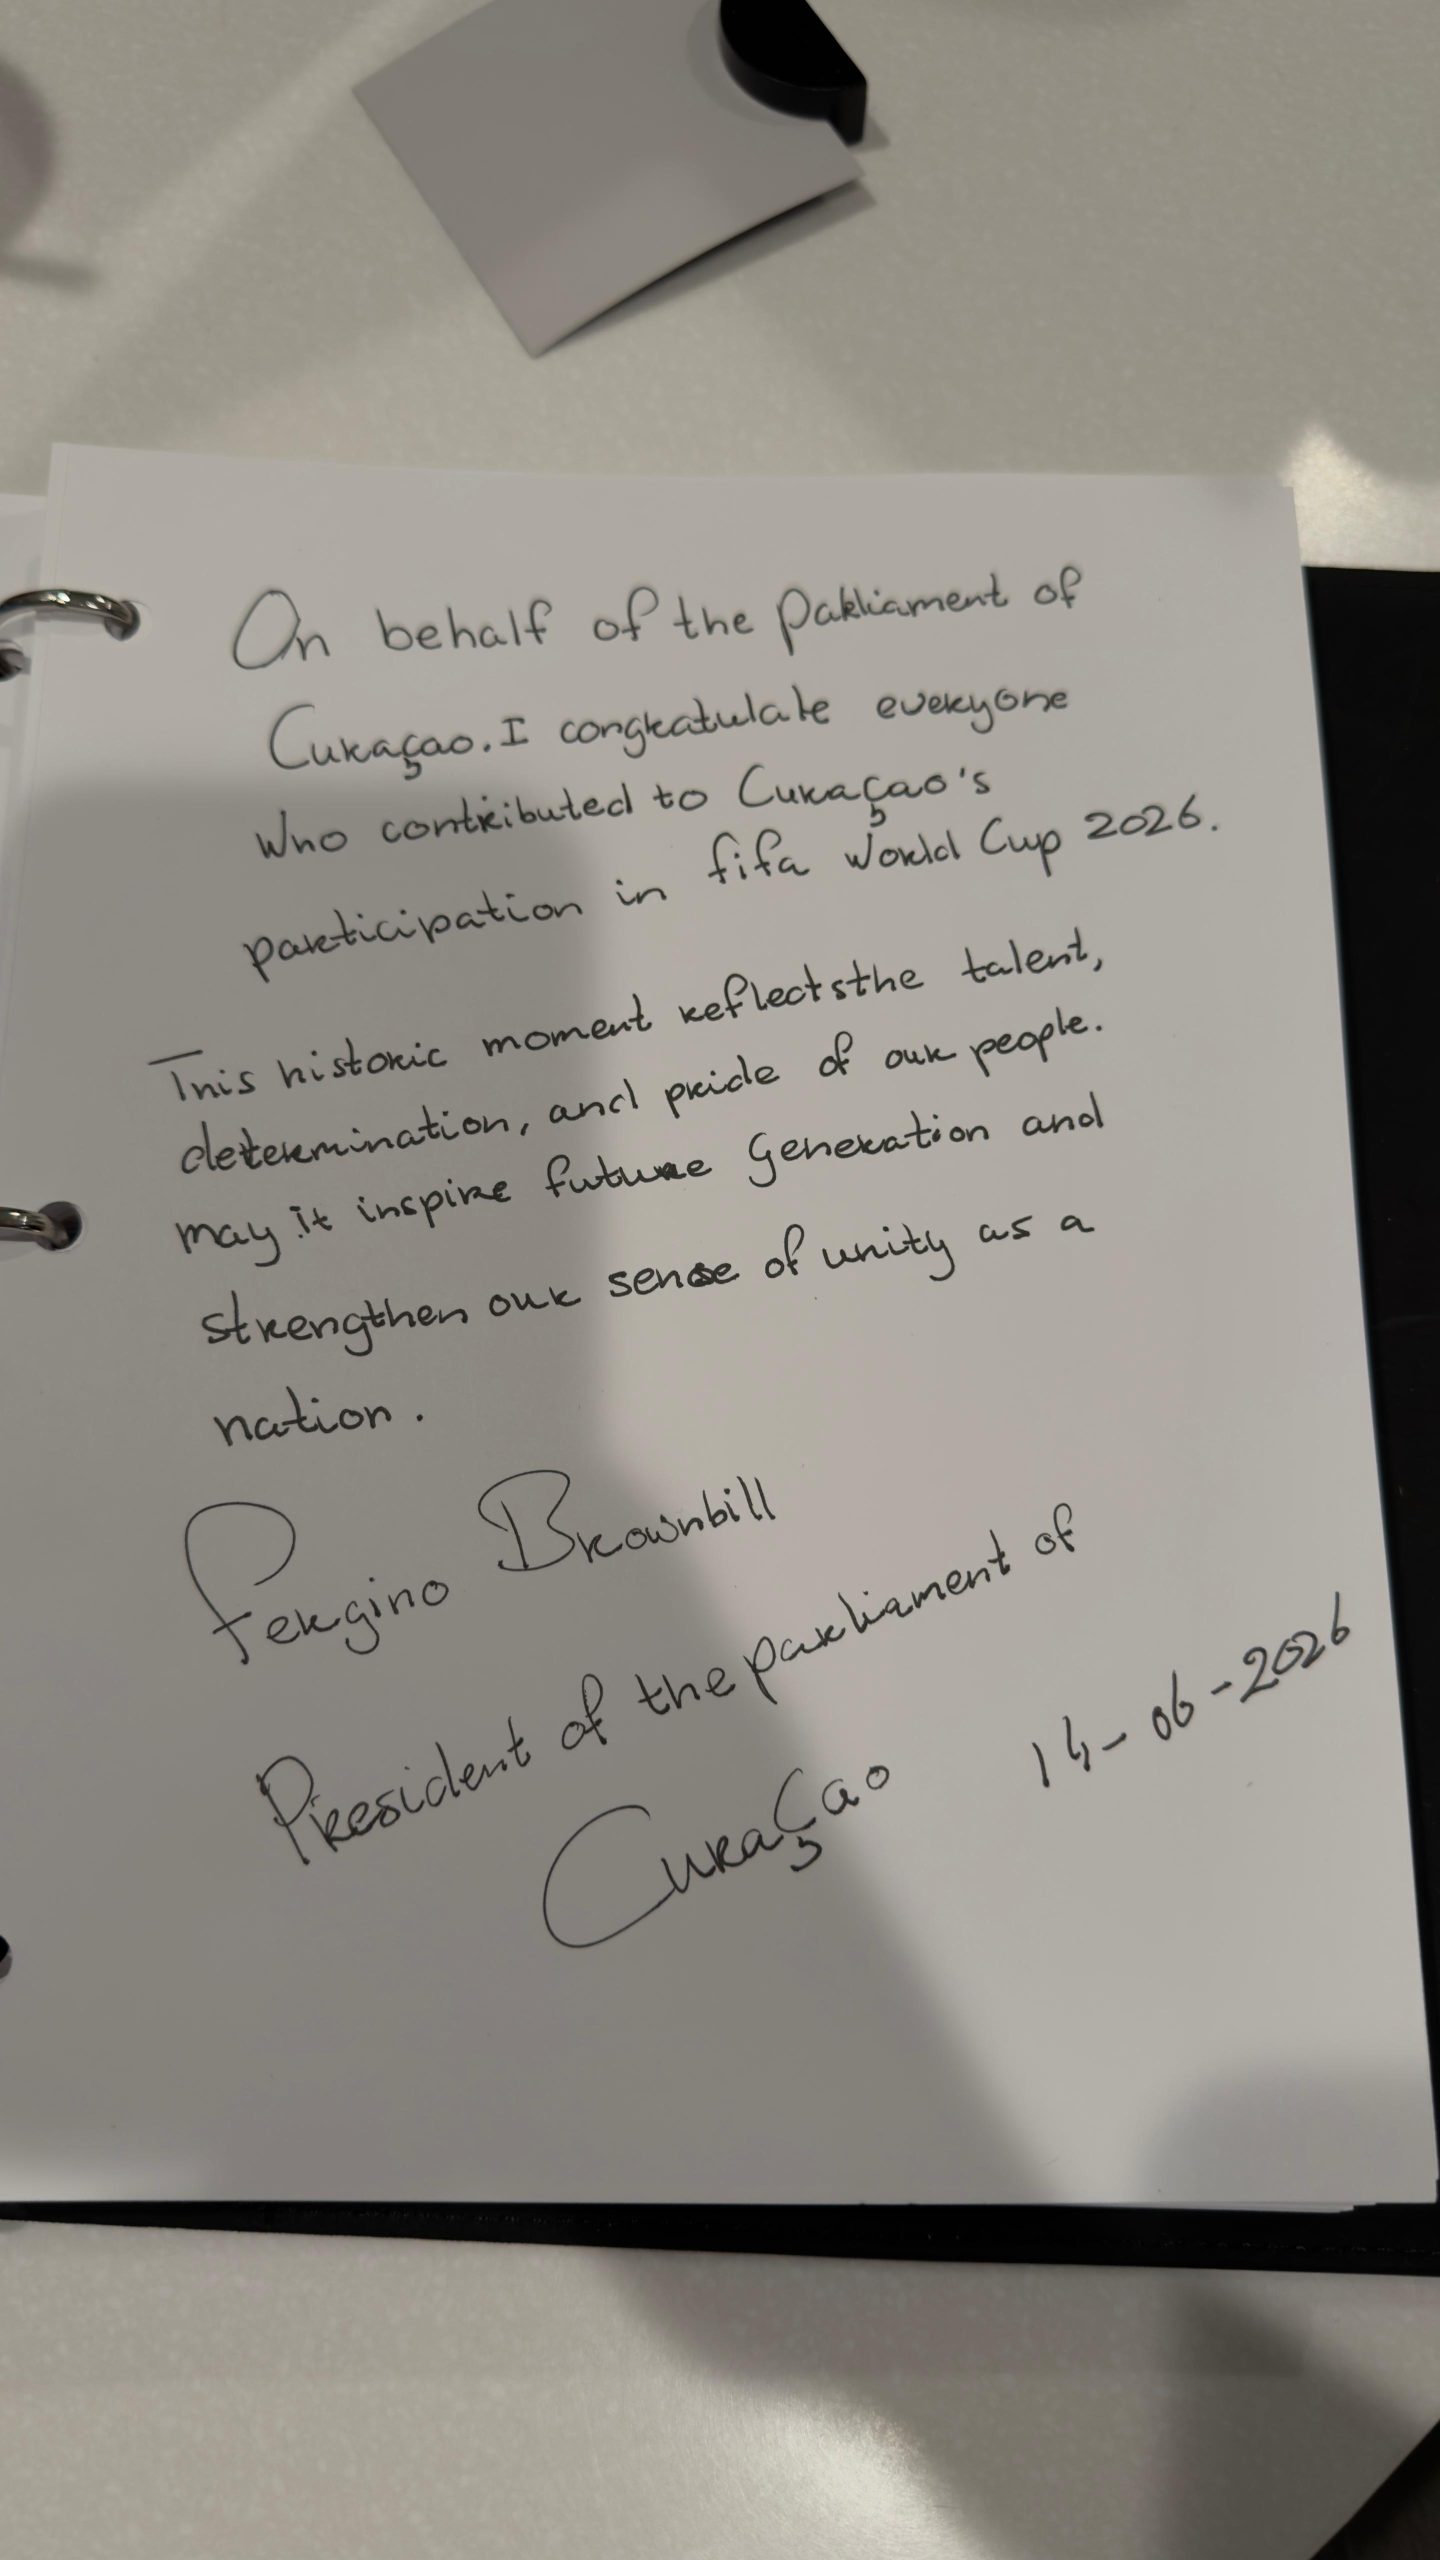 On behalf of the parliament of
Curaçao. I congratulate everyone
who contributed to Curaçao's
participation in fifa world Cup 2026.
This historic moment reflects the talent,
determination, and pride of our people.
may it inspire future Generation and
strengthen our sense of unity as a
nation.
Fergino Brownbill
President of the parliament of
Curaçao 14-06-2026